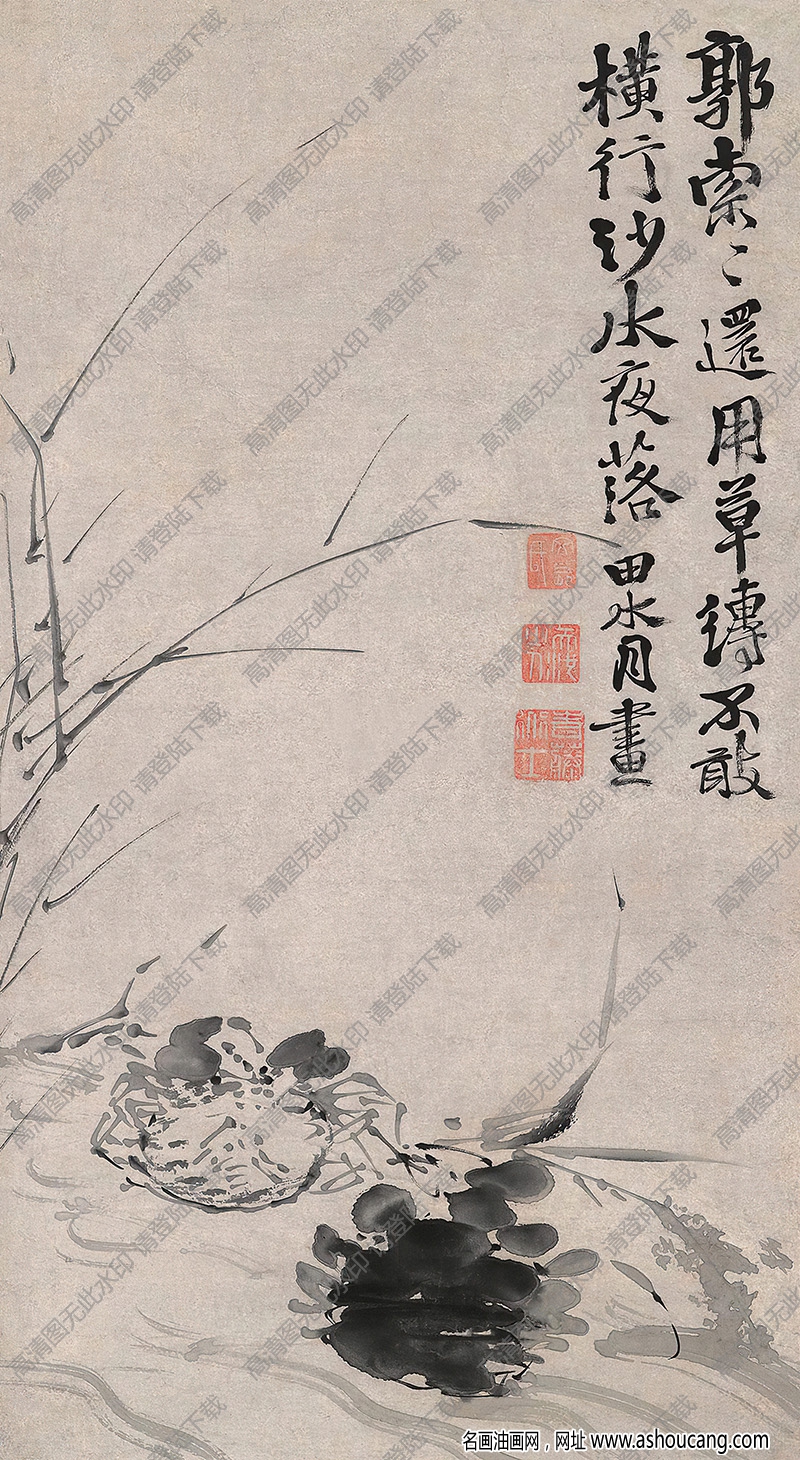 郭索郭索還用草縛不敢
橫行沙水夜落田水月畫
青藤道士
高清图无此水印 请登陆下载
名画油画网，网址 www.ashoucang.com